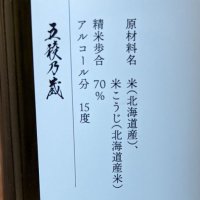 原材料名 米(北海道産)、
米こうじ(北海道産米)
精米歩合 70%
アルコール分 15度
五稜乃蔵